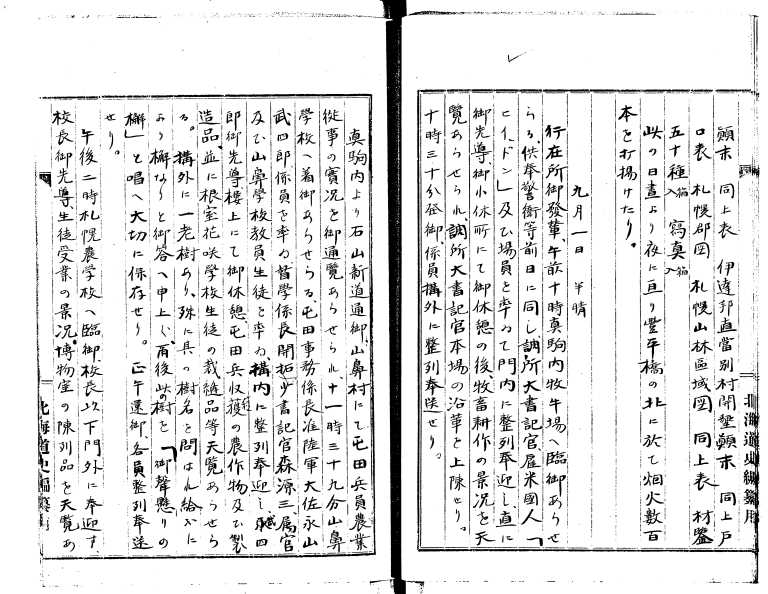 顛末 同上表 伊達邦直當別村開墾顛末 同上戸
口表 札幌郡図 札幌山林區域図 同上表 材鑒
五十種箱入 寫真箱入
此の日晝より夜に亘り豊平橋の北に於て烟火數百
本を打揚けたり。
九月一日 半晴
行在所御發輦、午前十時真駒内牧牛場へ臨御あらせ
らる供奉警衛等前日に同し、調所大書記官雇米國人「
ヒイトン」及ひ場員を率ゐて門内に整列奉迎し直に
御先導、御小休所にて御休憩の後牧畜耕作の景況を天
覧あらせられ、調所大書記官本場の沿革を上陳せり。
十時三十分發御、係員構外に整列奉送せり。
北海道史編纂用
真駒内より石山新道通御、山鼻村にて屯田兵員農業
從事の實況を御通覧あらせられ、十一時三十九分山鼻
學校へ着御あらせらる、屯田事務係長准陸軍大佐永山
武四郎係員を率ゐ督學係長開拓少書記官森源三属官
及ひ山鼻學校教員生徒を率ゐ、構内に整列奉迎し武四
郎御先導樓上にて御休憩、屯田兵収獲の農作物及ひ製
造品、並に根室花咲學校生徒の裁縫品等天覧あらせら
る。構外に一老樹あり、殊に其の樹名を問はれ給ふに
より檞なりと御答へ申上く、爾後此の樹を「御聲懸りの
檞」と唱へ大切に保存せり。正午還御、各員整列奉送
せり。
午後二時札幌農學校へ臨御、校長以下門外に奉迎す、
校長御先導、生徒受業の景況、博物室の陳列品を天覧あ
北海道史編纂用